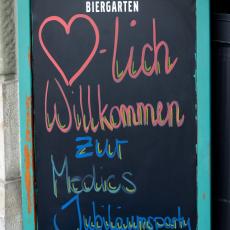 BIERGARTEN
♡-lich
Willkommen
zur
Medics
Jubiläumsparty